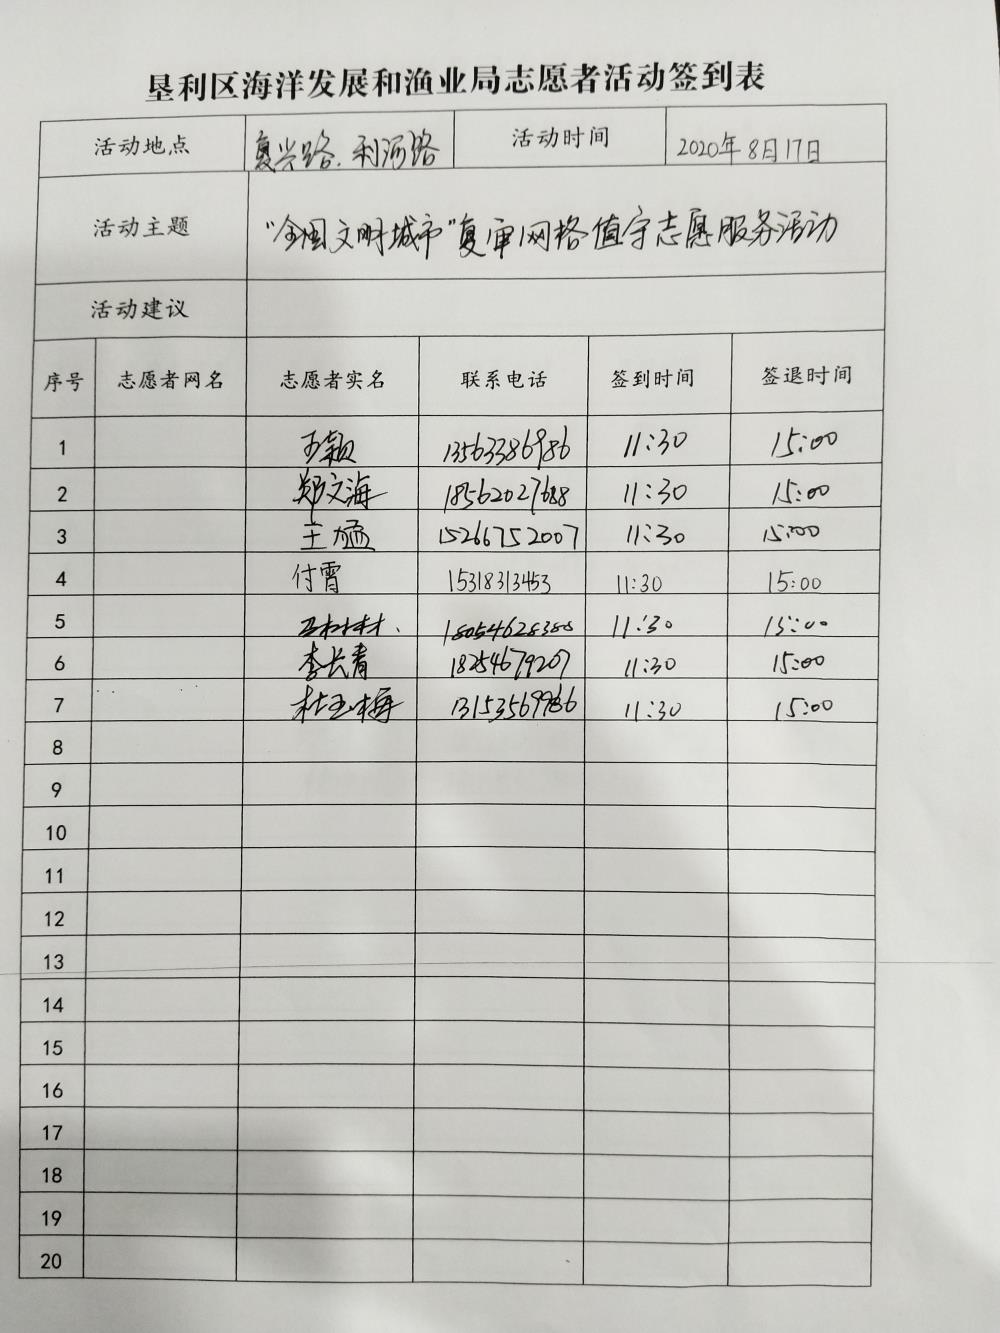 垦利区海洋发展和渔业局志愿者活动签到表
活动地点 复兴路、利河路 活动时间 2020年8月17日
活动主题 "全国文明城市"复审网格值守志愿服务活动
活动建议
序号 志愿者网名 志愿者实名 联系电话 签到时间 签退时间
1 王颖 13563386986 11:30 15:00
2 郑文海 18562027688 11:30 15:00
3 王猛 15266752007 11:30 15:00
4 付霄 15318313453 11:30 15:00
5 18054628388 11:30 15:00
6 李长青 18254679207 11:30 15:00
7 杜玉梅 13153569986 11:30 15:00
8
9
10
11
12
13
14
15
16
17
18
19
20